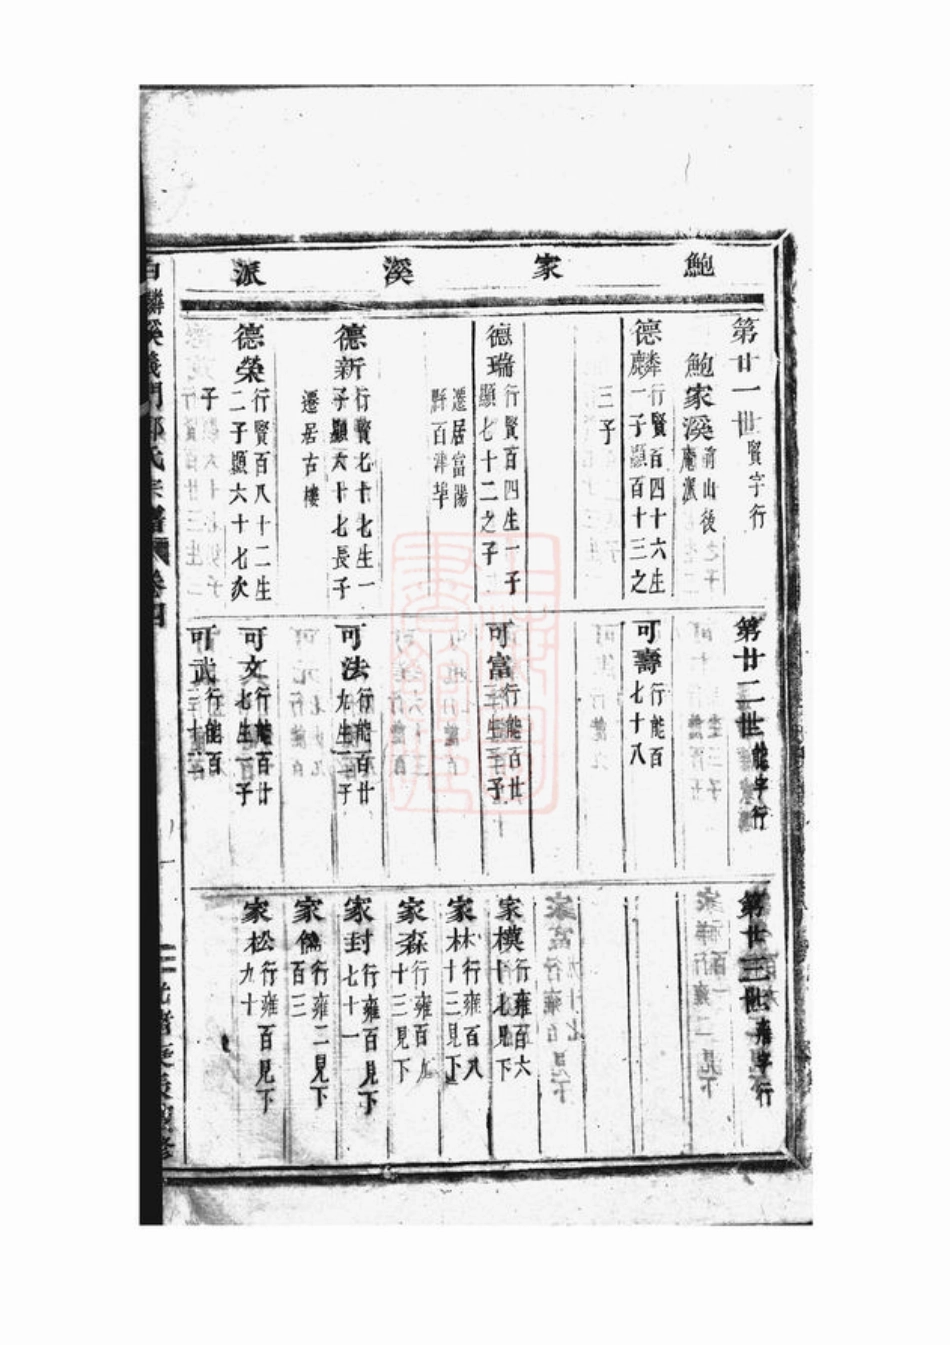 鮑家溪派
第廿一世賢字行
鮑家溪前山後
德麟行賢百四十六生
一子顯百十三之
三子
德瑞行賢百四生一子
顯七十二之子
遷居富陽
縣百津埠
德新行賢七十七生一
子顯六十七長子
遷居古樓
德榮行賢百八十二生
二子顯六十七次
子
第廿二世能字行
可壽行能百
七十八
可富行能百廿
三生三子
可法行能百廿
九生二子
可文行能百廿
七生一子
可武行能百
三十二
第廿三世雍字行
家模行雍百六
十七見下
家林行雍百八
十三見下
家森行雍百九
十三見下
家封行雍百見下
七十一
家儁行雍二見下
百三
家松行雍百見下
九十
白麟溪義門鄭氏宗譜
卷四